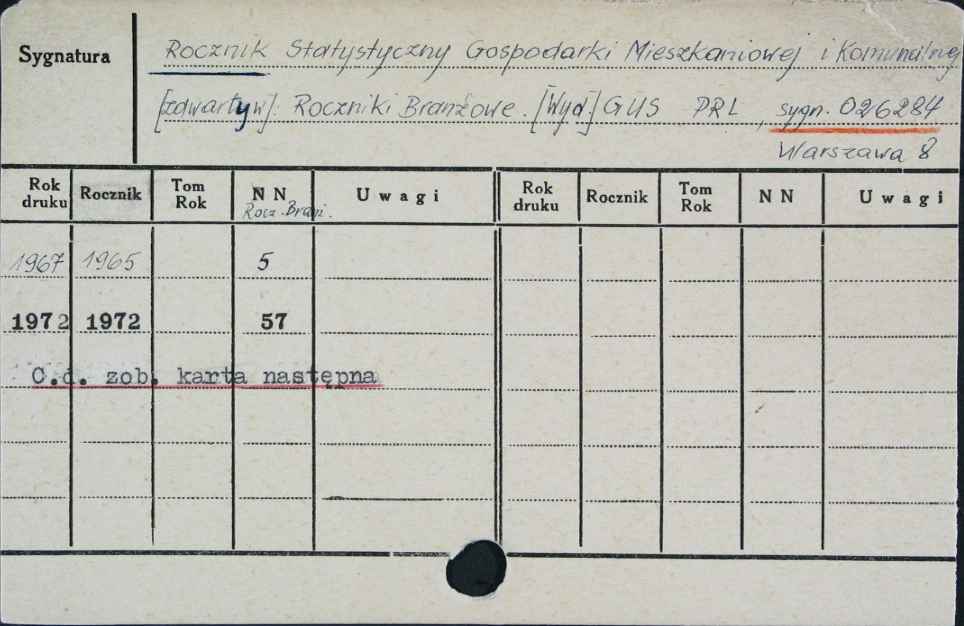 Sygnatura
Rocznik Statystyczny Gospodarki Mieszkaniowej i Komunalnej
[zawarty w]: Roczniki Branżowe. [Wyd.] GUS PRL, sygn. 026284
Warszawa 8
Rok druku Rocznik Tom Rok N N Uwagi Rok druku Rocznik Tom Rok N N Uwagi
Rocz. Branż.
1967 1965 5
1972 1972 57
C.d. zob. karta następna